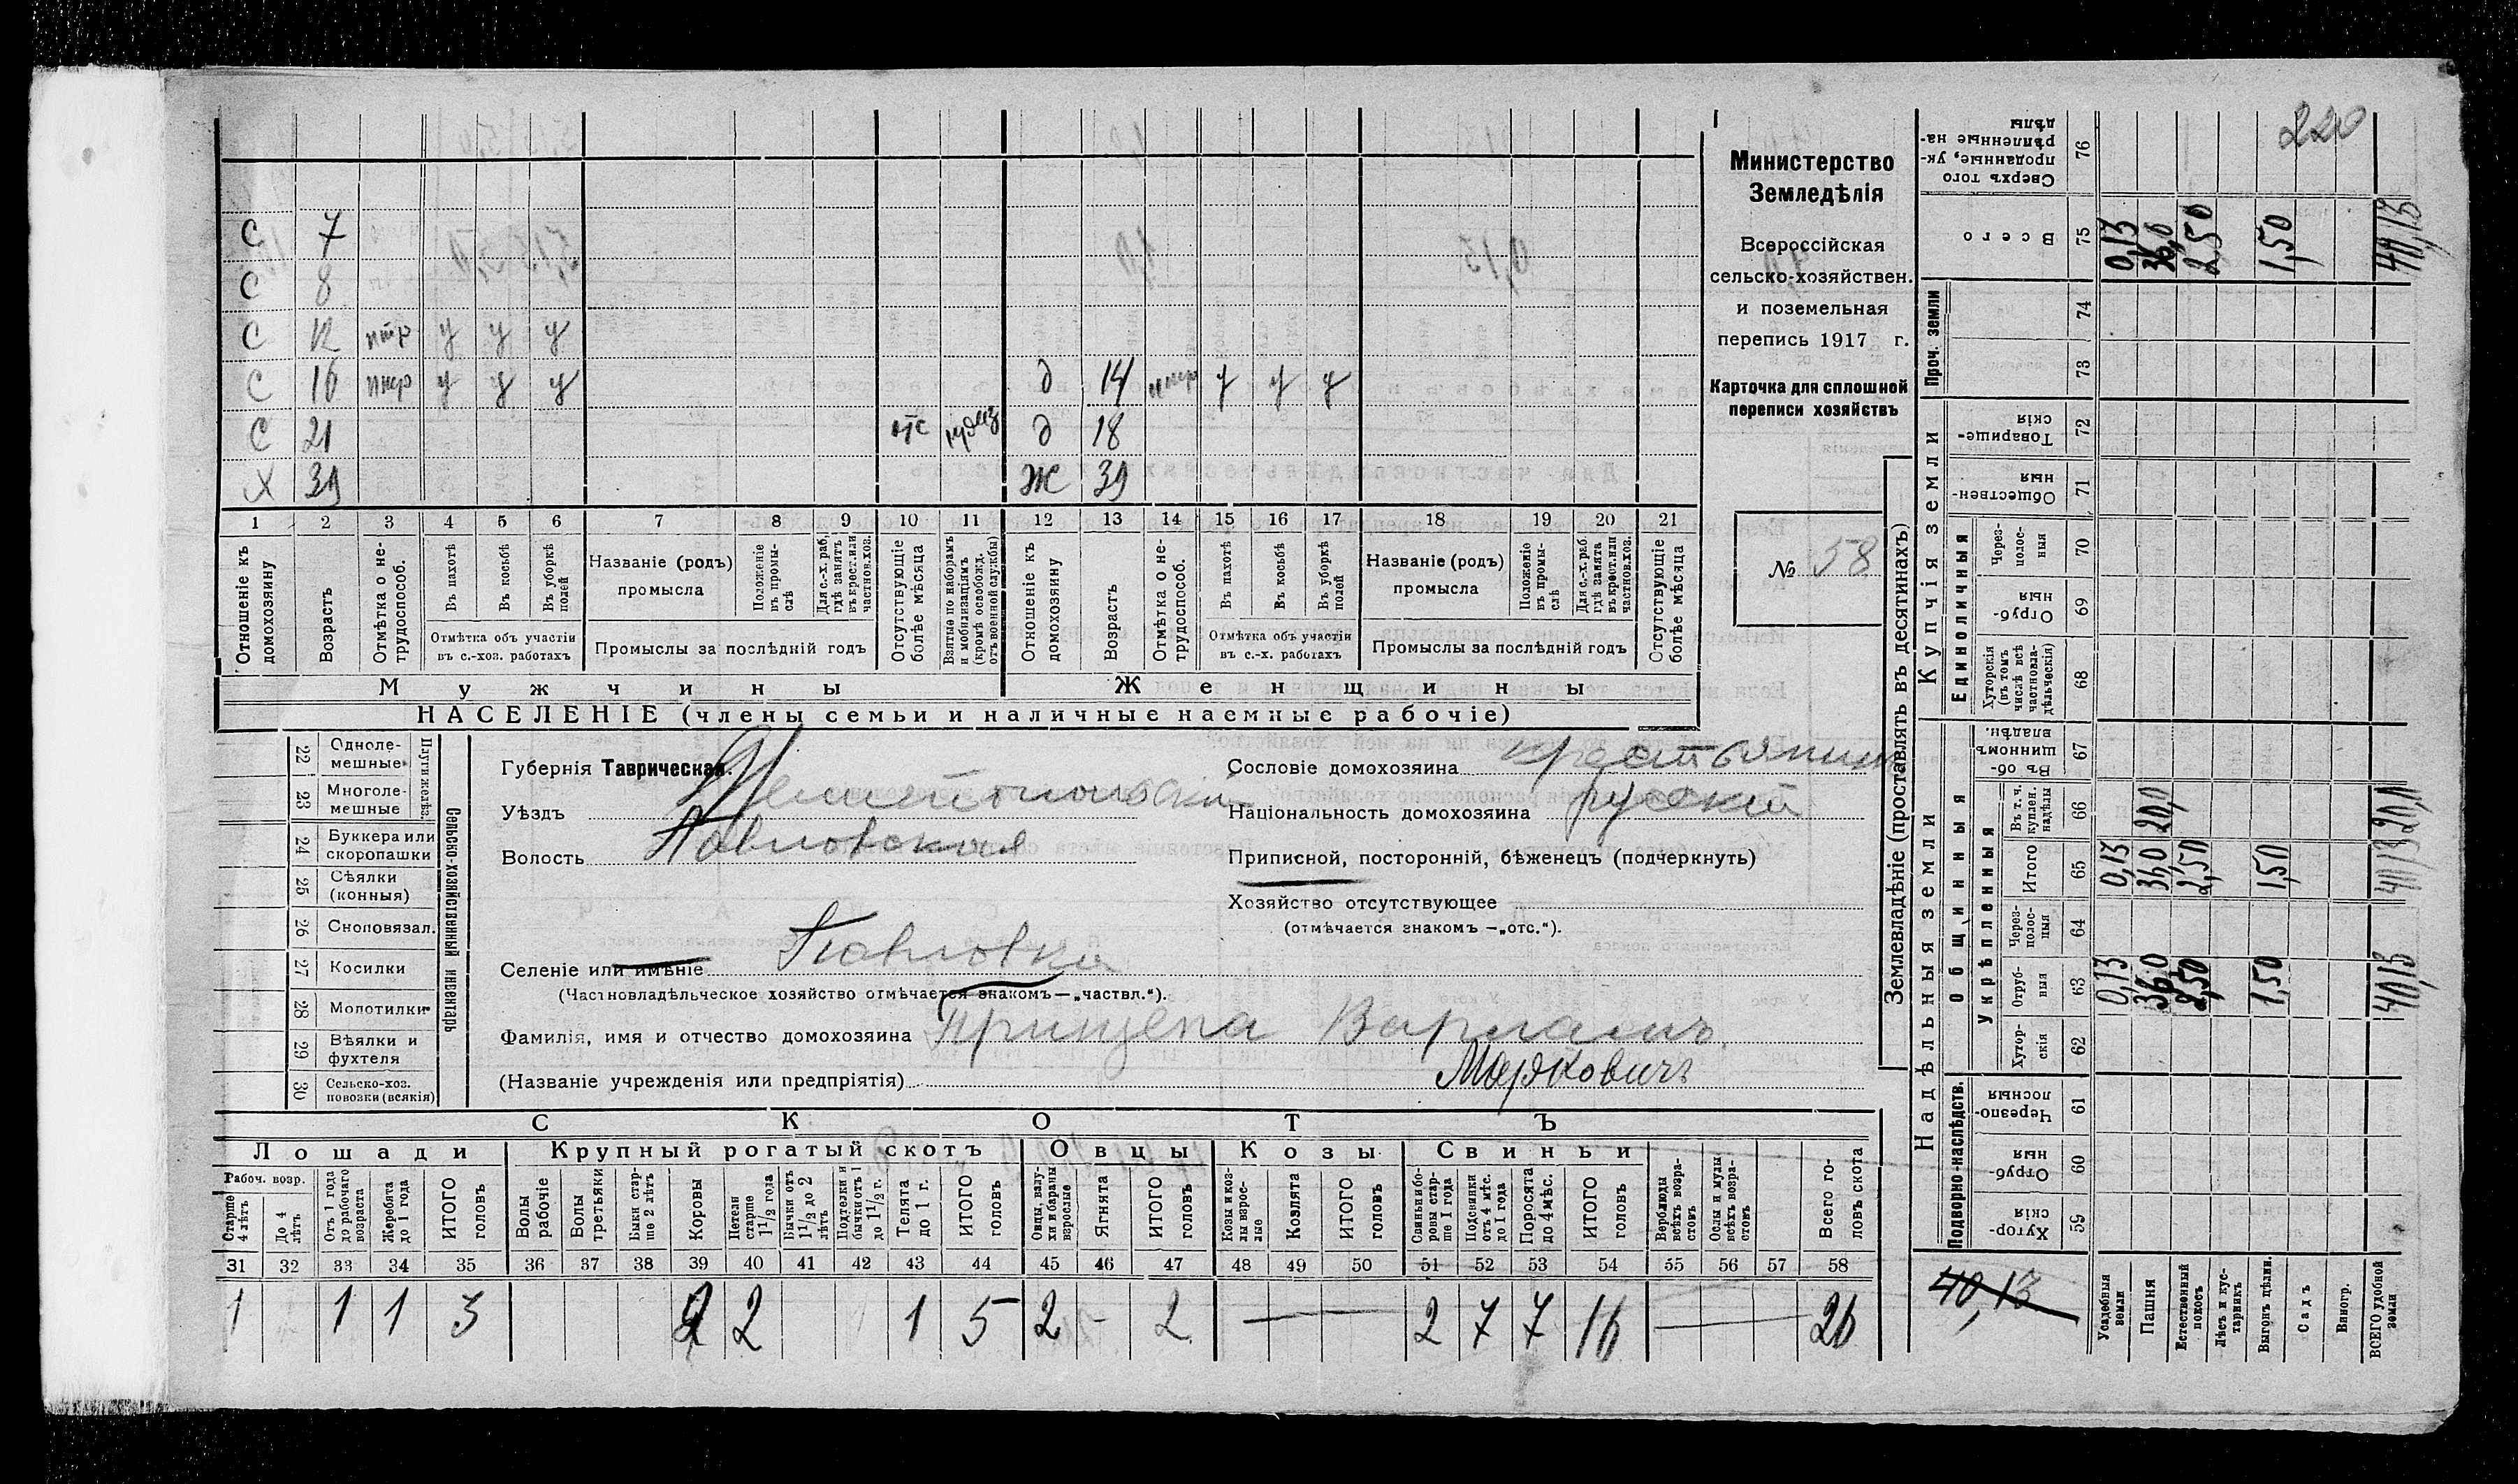 220
Министерство
Земледѣлія
Всероссійская
сельско-хозяйствен.
и поземельная
перепись 1917 г.
Карточка для сплошной
переписи хозяйствъ
№ 58
С 7
С 8
С 12 нтр у у у
С 16 нтр у у у д 14 нтр у у у
С 21 отс д 18
Х 39 Ж 39
1 2 3 4 5 6 7 8 9 10 11 12 13 14 15 16 17 18 19 20 21
Отношеніе къ домохозяину
Возрастъ
Отмѣтка о не-трудоспособ.
Въ пахотѣ
Въ косьбѣ
Въ уборкѣ полей
Отмѣтка объ участіи въ с.-хоз. работахъ
Названіе (родъ) промысла
Положеніе въ промы-слѣ
Для с.-х. раб. гдѣ занятъ въ крест. или частнов. хоз.
Промыслы за послѣдній годъ
Отсутствующіе болѣе мѣсяца
Взятые по наборамъ и мобилизаціямъ (кромѣ освобожд. отъ военной службы)
Отношеніе къ домохозяину
Возрастъ
Отмѣтка о не-трудоспособ.
Въ пахотѣ
Въ косьбѣ
Въ уборкѣ полей
Отмѣтка объ участіи въ с.-х. работахъ
Названіе (родъ) промысла
Положеніе въ промы-слѣ
Для с.-х. раб. гдѣ занята въ крест. или частнов. хоз.
Промыслы за послѣдній годъ
Отсутствующіе болѣе мѣсяца
Мужчины Женщины
НАСЕЛЕНІЕ (члены семьи и наличные наемные рабочіе)
Сельско-хозяйственный инвентарь
Плуги желѣз.
22 Одноле-мешные
23 Многоле-мешные
24 Буккера или скоропашки
25 Сѣялки (конныя)
26 Сноповязал.
27 Косилки
28 Молотилки
29 Вѣялки и фухтеля
30 Сельско-хоз. повозки (всякія)
Губернія Таврическая.
Уѣздъ
Волость Павловская
Селеніе или имѣніе Павловка
(Частновладѣльческое хозяйство отмѣчается знакомъ—„частвл.“).
Фамилія, имя и отчество домохозяина Прищепа Варламъ
Марковичъ
(Названіе учрежденія или предпріятія)
Сословіе домохозяина крестьянин
Національность домохозяина русскій
Приписной, посторонній, бѣженецъ (подчеркнуть)
Хозяйство отсутствующее
(отмѣчается знакомъ —„отс.“).
СКОТЪ
Лошади Крупный рогатый скотъ Овцы Козы Свиньи
Рабоч. возр.
Старше 4 лѣтъ
До 4 лѣтъ
Отъ 1 года до рабочаго возраста
Жеребята до 1 года
ИТОГО головъ
Волы рабочіе
Волы третьяки
Быки стар-ше 2 лѣтъ
Коровы
Нетели старше 1 1/2 года
Бычки отъ 1 1/2 до 2 лѣтъ
Подтелки и бычки отъ 1 до 1 1/2 г.
Телята до 1 г.
ИТОГО головъ
Овцы, валу-хи и бараны взрослые
Ягнята
ИТОГО головъ
Козы и коз-лы взрос-лые
Козлята
ИТОГО головъ
Свиньи и бо-ровы стар-ше 1 года
Подсвинки отъ 4 мѣс. до 1 года
Поросята до 4 мѣс.
ИТОГО головъ
Верблюды всѣхъ возра-стовъ
Ослы и мулы всѣхъ возра-стовъ
Всего го-ловъ скота
31 32 33 34 35 36 37 38 39 40 41 42 43 44 45 46 47 48 49 50 51 52 53 54 55 56 57 58
1 1 1 3 2 2 1 5 2 - 2 — 2 7 7 16 — 26
Землевладѣніе (проставлять въ десятинахъ)
Надѣльныя земли
Купчія земли
Проч. земли
Подворно-наслѣдств.
Общинныя
Укрѣпленныя
Единоличныя
Сверхъ того проданные, ук-рѣпленные на-дѣлы 76
Всего 75 0,13 36,0 2,50 1,50 40,13
74
73
Товарище-скія 72
Обществен-ныя 71
Через-полос-ныя 70
Отруб-ныя 69
Хуторскія (въ томъ числѣ всѣ частновла-дѣльческія) 68
Въ об-щинномъ владѣн. 67
Въ т. ч. куплен. надѣлы 66 20,0 20,0
Итого 65 0,13 36,0 2,50 1,50 40,13
Через-полос-ныя 64
Отруб-ныя 63 0,13 36,0 2,50 1,50 40,13
Хутор-скія 62
Черезпо-лосныя 61
Отруб-ныя 60
Хутор-скія 59
40,13
Усадебныя земли
Пашня
Естественный покосъ
Лѣсъ и кус-тарникъ
Выгонъ цѣлин.
Садъ
Виногр.
ВСЕГО удобной земли